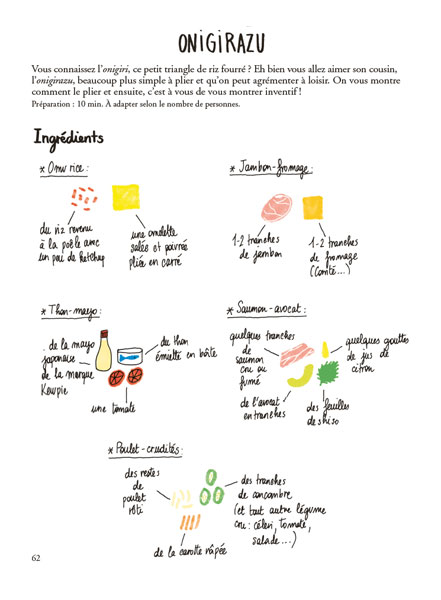 ONIGIRAZU
Vous connaissez l'onigiri, ce petit triangle de riz fourré ? Eh bien vous allez aimer son cousin,
l'onigirazu, beaucoup plus simple à plier et qu'on peut agrémenter à loisir. On vous montre
comment le plier et ensuite, c'est à vous de vous montrer inventif !
Préparation : 10 min. À adapter selon le nombre de personnes.
Ingrédients
* Omu rice :
du riz revenu
à la poêle avec
un peu de ketchup
une omelette
salée et poivrée
pliée en carré
* Jambon-fromage :
1-2 tranches
de jambon
1-2 tranches
de fromage
(Comté...)
* Thon-mayo :
. de la mayo
japonaise
de la marque
Kewpie
du thon
émietté en boîte
une tomate
* Saumon-avocat :
quelques tranches
de
saumon
cru ou
fumé
quelques gouttes
de jus de
citron
de l'avocat
en tranches
des feuilles
de shiso
* Poulet-crudités :
des restes
de
poulet
rôti
des tranches
de concombre
(et tout autre légume
cru : céleri, tomate,
salade...)
de la carotte râpée
62